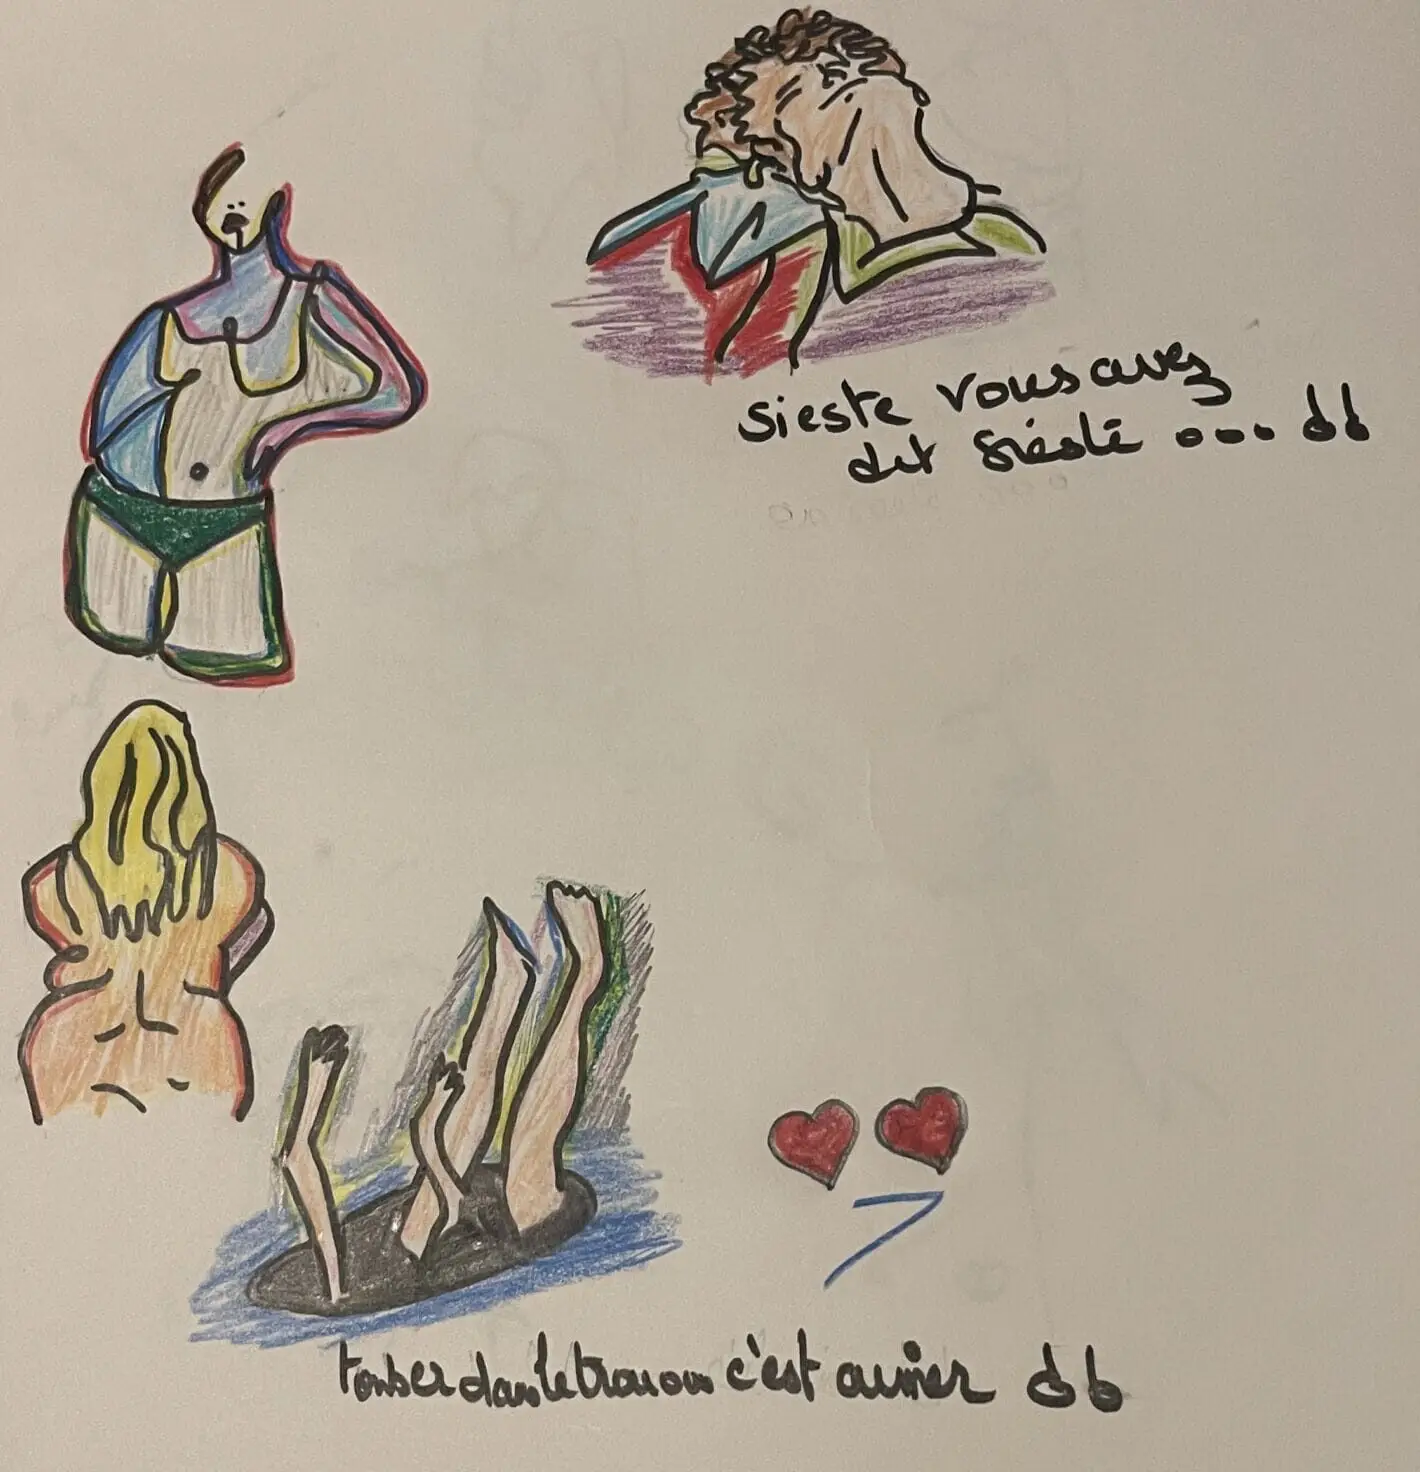 sieste vous avez
dit siesté ... db
tomber dans le trou ou c'est aimer db